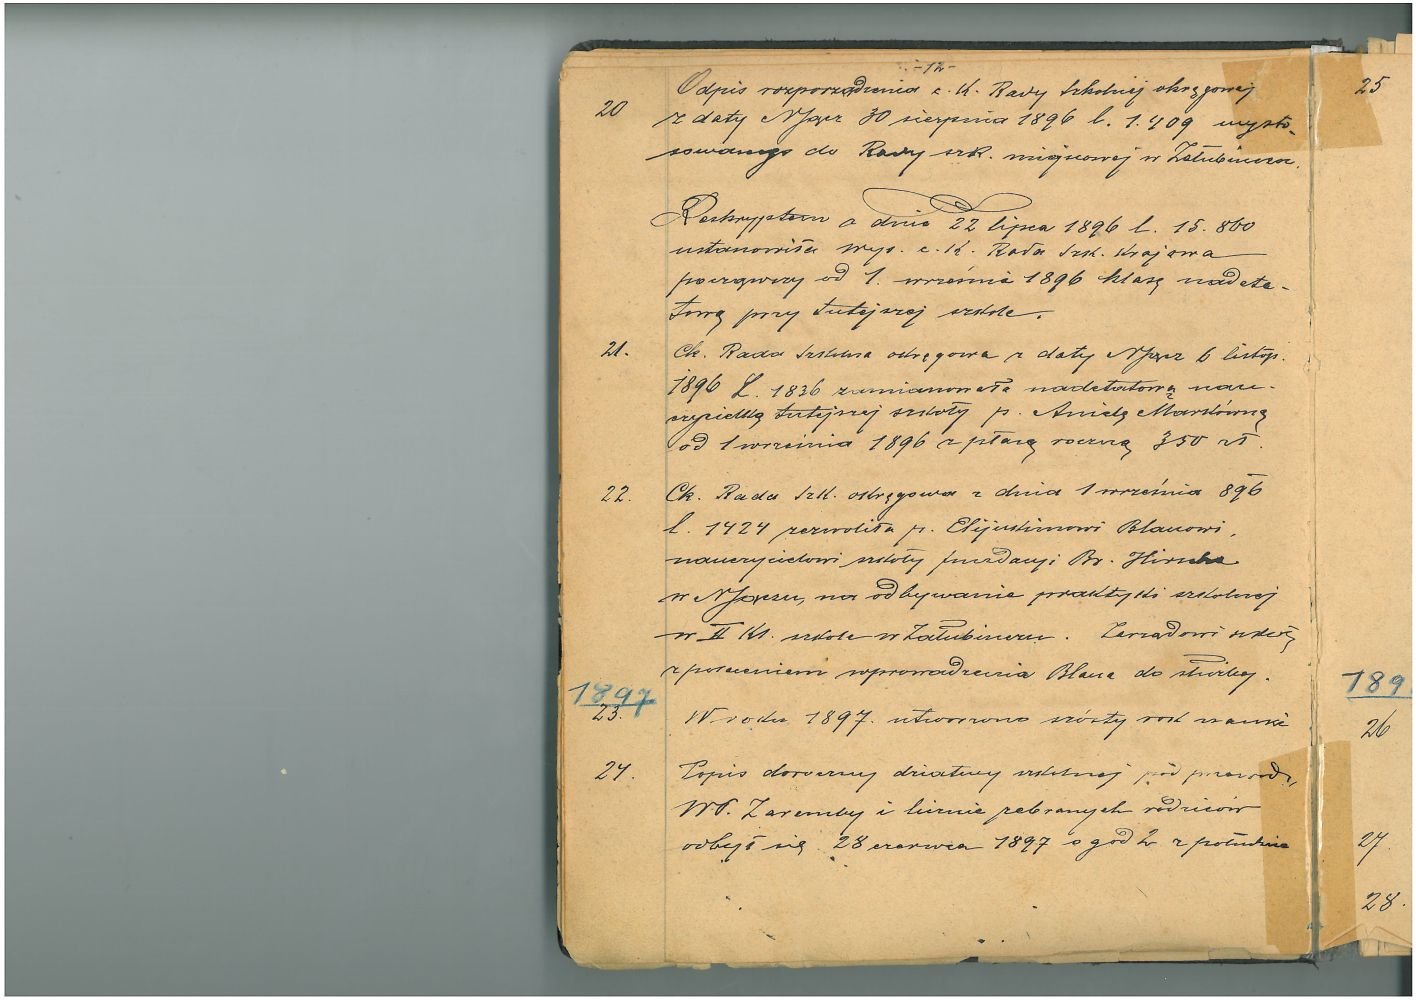 -12-
20 Odpis rozporządzenia c. K. Rady Szkolnej okręgowej
z daty NSącz 30 sierpnia 1896 l. 1.409 wysto-
sowanego do Rady szk. miejscowej w Załubinczu.
Reskryptem z dnia 22 lipca 1896 l. 15.860
ustanowiła wys. c. K. Rada Szk. Krajowa
począwszy od 1. września 1896 klasę nadeta-
tową przy tutejszej szkole.
21. Ck. Rada Szkolna okręgowa z daty NSącz 6 listop.
1896 L. 1836 zamianowała nadetatową nau-
czycielką tutejszej szkoły p. Anielę Markównę
od 1 września 1896 z płacą roczną 350 zł.
22. Ck. Rada Szk. okręgowa z dnia 1 września 896
l. 1424 zezwoliła p. Elijukimowi Blauowi,
nauczycielowi szkoły fundacyi Br. Hirscha
w NSączu, na odbywanie praktyki szkolnej
w II Kl. szkole w Załubinczu. Zarządowi szkoły
z poleceniem wprowadzenia Blaua do służby.
1897
23. W roku 1897. utworzono szósty rok nauki
24. Popis doroczny dziatwy szkolnej pod przewodz.
WP. Zaremby i licznie zebranych rodziców
odbył się 28 czerwca 1897 o god 2 z południa
25
189
26
27.
28.